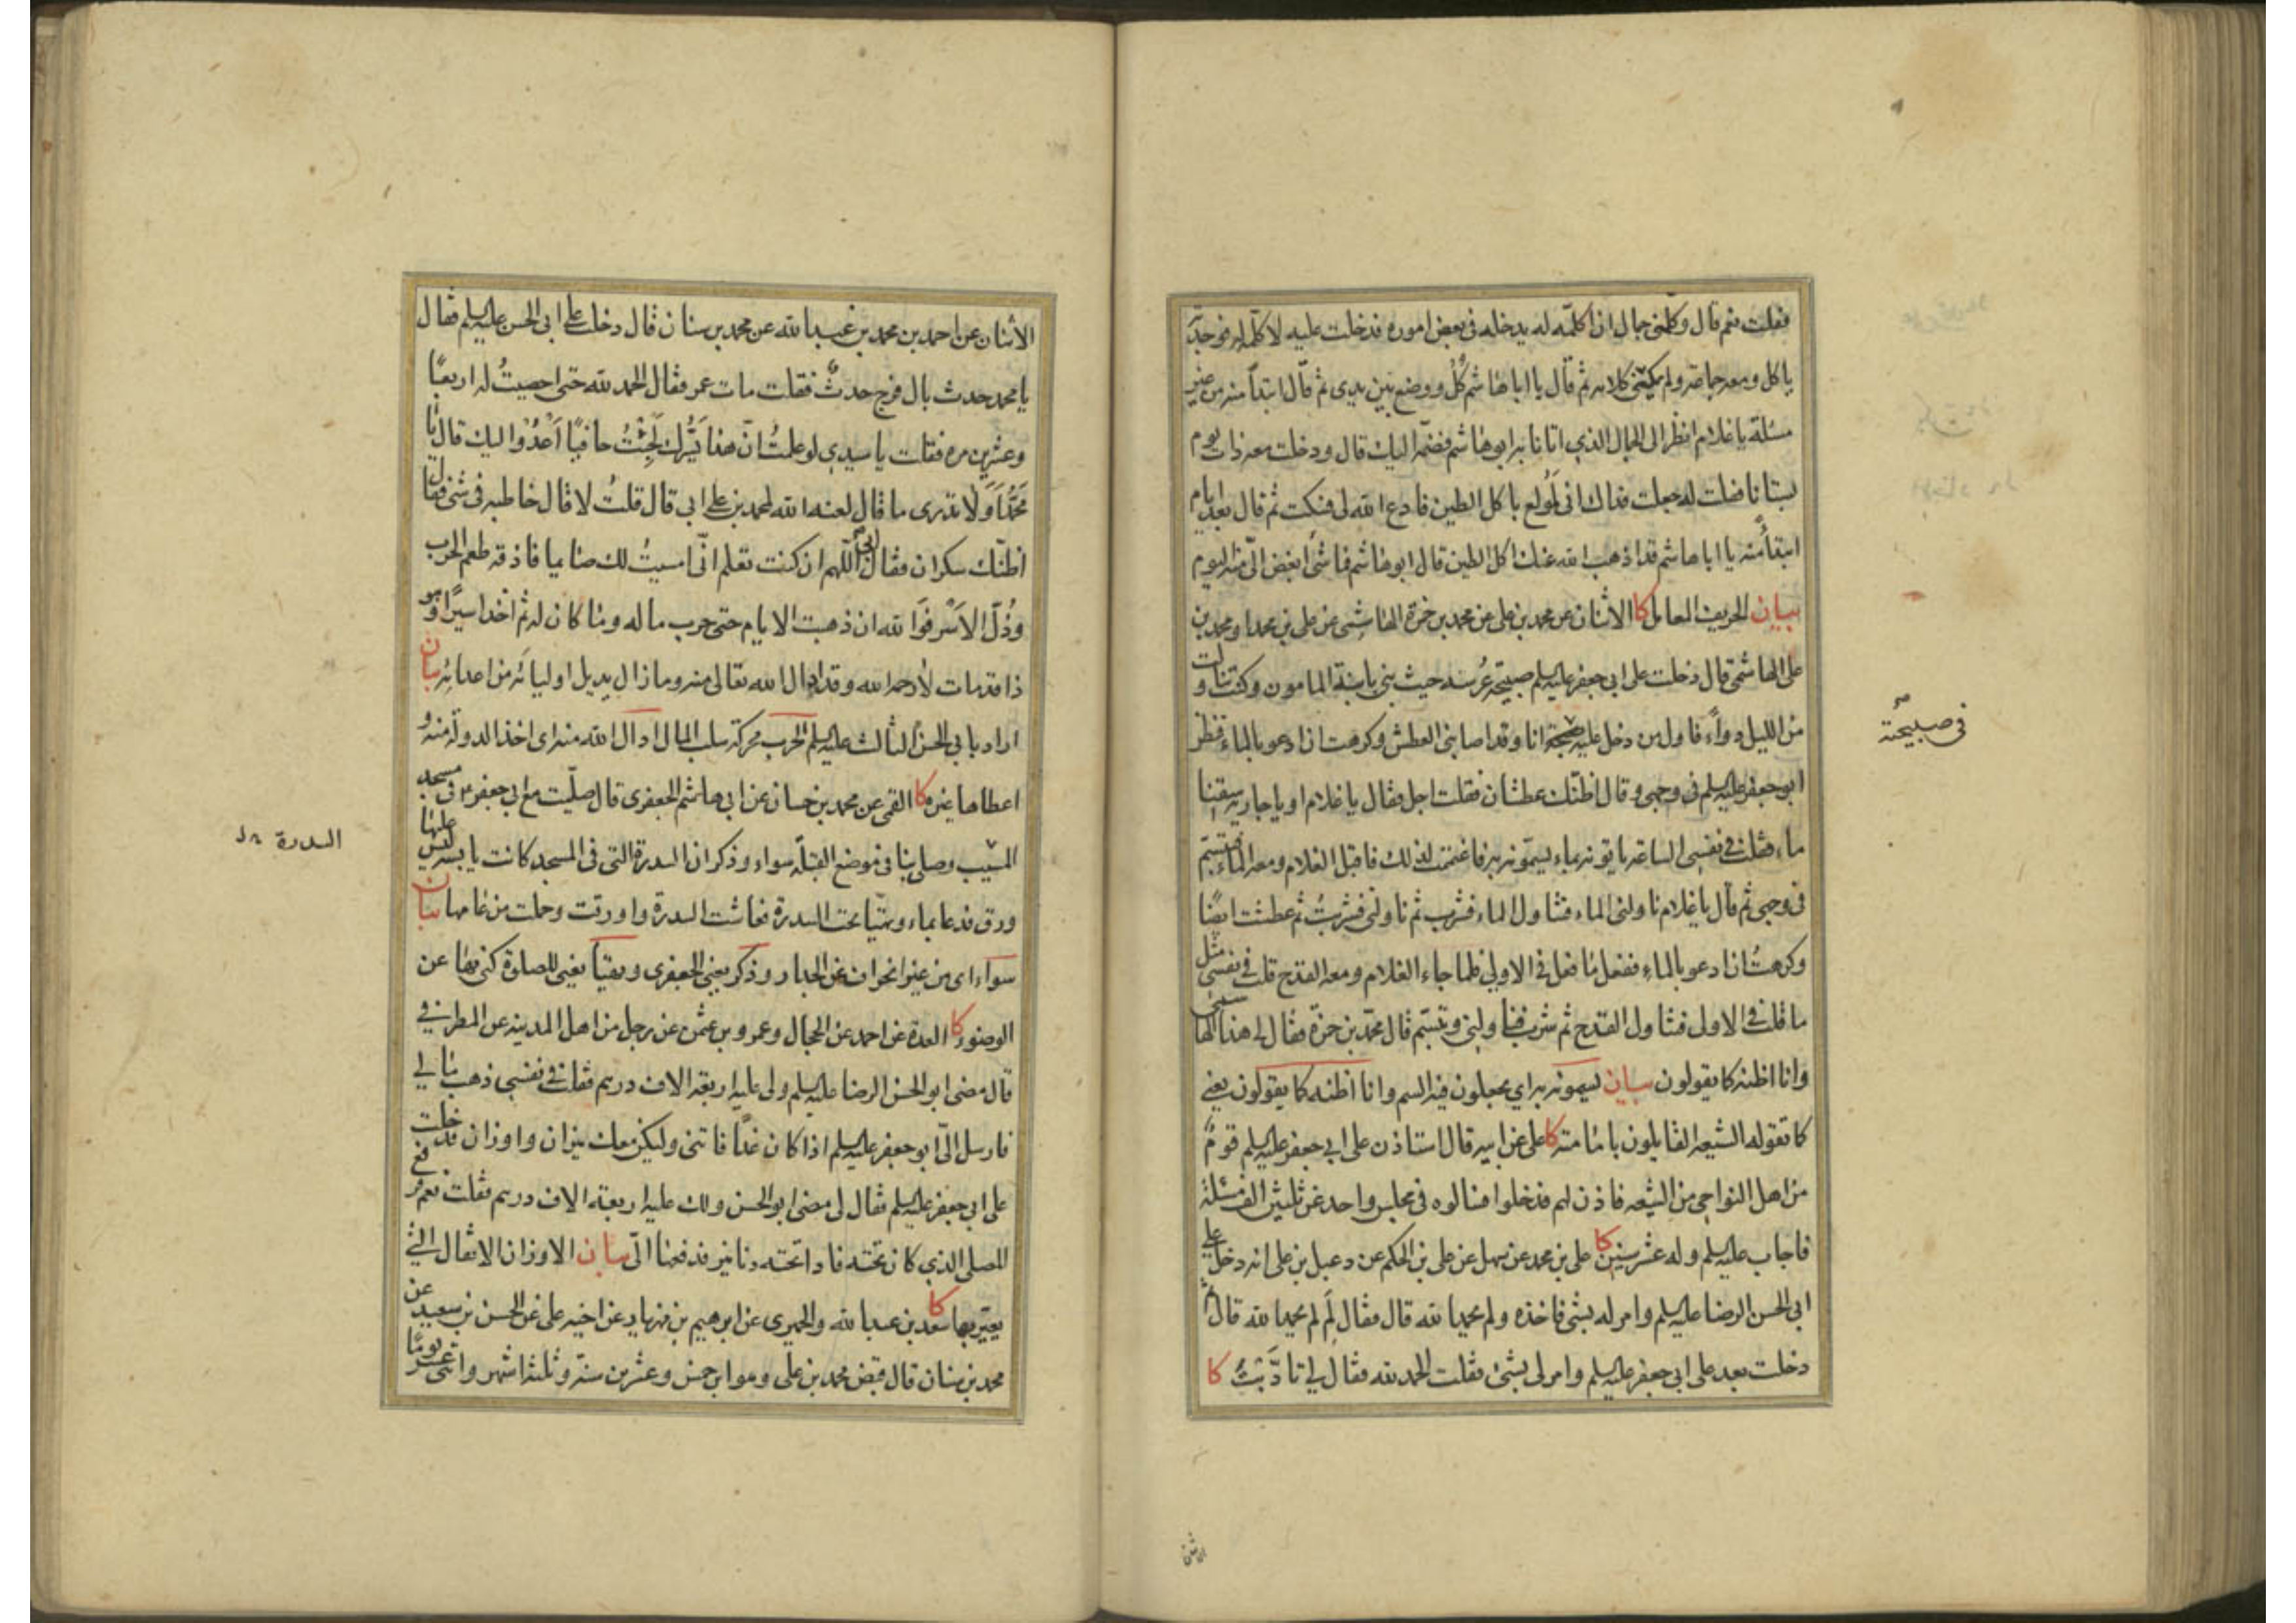 فقلت نعم قال وكلمني جمال ان اكلمه له يدخله في بعض اموره فدخلت عليه لاكلمه له فوجدته
ياكل ومعه جماعة ولم يمكنني كلامه ثم قال يا ابا هاشم كُل ووضع بين يدي ثم قال ابتداً منه من غير
مسئلة يا غلام انظر الى الجمال الذي اتانا به ابو هاشم فضمه اليك قال ودخلت معه ذات يوم
بستانا فقلت له جعلت فداك اني لمولع باكل الطين فادع الله لي فسكت ثم قال بعد ايام
ابتداً منه يا ابا هاشم قد اذهب الله عنك اكل الطين قال ابو هاشم فما شئ ابغض اليّ منه اليوم
بيان الحريف المعامل كا الاثنان عن محمد بن علي عن محمد بن حمزة الهاشمي عن علي بن محمد او محمد بن
علي الهاشمي قال دخلت على ابي جعفر عليه السلم صبيحة عرسه حيث بنى بابنة المامون وكنت تناولت
من الليل دواءً فاول من دخل عليه صبيحته انا وقد اصابني العطش وكرهت ان ادعو بالماء فنظر
ابو جعفر عليه السلم في وجهي وقال اظنك عطشان فقلت اجل فقال يا غلام او يا جارية اسقنا
ماء فقلت في نفسي الساعة ياتونه بماء يسمونه به فاغتممت لذلك فاقبل الغلام ومعه الماء فتبسم
في وجهي ثم قال يا غلام ناولني الماء فتناول الماء فشرب ثم ناولني فشربتُ ثم عطشت ايضًا
وكرهتُ ان ادعو بالماء ففعل ما فعل في الاولى فلما جاء الغلام ومعه القدح قلت في نفسي مثل
ما قلت في الاولى فتناول القدح ثم شرب فناولني وتبسم قال محمد بن حمزة فقال لي هذا الهاشمي
وانا اظنه كما يقولون بيان يسمونه به اي يجعلون فيه السم وانا اظنه كما يقولون يعني
كما تقوله الشيعة القايلون بامامته كا علي عن ابيه قال استاذن على ابي جعفر عليه السلم قومٌ
من اهل النواحي من الشيعة فاذن لهم فدخلوا فسالوه في مجلس واحد عن ثلثين الف مسئلة
فاجاب عليه السلم وله عشر سنين كا علي بن محمد عن سهل عن علي بن الحكم عن دعبل بن علي انه دخل على
ابي الحسن الرضا عليه السلم وامر له بشئ فاخذه ولم يحمد الله قال فقال لِمَ لم تحمد الله قال ثم
دخلت بعد على ابي جعفر عليه السلم وامر لي بشئ فقلت الحمد لله فقال لي تادَّبتَ كا
في صبيحته
الاثنان عن احمد بن محمد بن عبد الله عن محمد بن سنان قال دخلت على ابي الحسن عليه السلم فقال
يا محمد حدث بال فرج حدثٌ فقلت مات عمر فقال الحمد لله حتى احصيتُ له اربعًا
وعشرين مرة فقلت يا سيدي لو علمتُ انّ هذا يَسُرُّك لَجِئْتُ حافيًا اَعْدُوا اليك قال يا
محمّد اَوَ لا تدري ما قال لعنه الله لمحمد بن علي ابي قال قلتُ لا قال خاطبه في شئ فقال
اظنّك سكران فقال ابي اللّهم ان كنت تعلم انّى امسيتُ لك صايما فاذقه طعم الحرب
وذُلّ الاَسْر فوالله ان ذهبت الايام حتى حرب ماله وما كان له ثم اخذ اسيرًا وهو
ذا قد مات لا رحمه الله وقد ادال الله تعالى منه وما زال يديل اولياءه من اعدائه بيان
اراد بابي الحسن الثالث عليه السلم الحرب محركة سلب المال ادال الله منه اي اخذ الدولة منه و
اعطاها غيره كا القمي عن محمد بن حسان عن ابي هاشم الجعفري قال صلّيت مع ابي جعفر ع في مسجد
المسيّب وصلى بنا في موضع القبلة سواء وذكر ان السدرة التي في المسجد كانت يابسة ليس عليها
ورق فدعا بماء وتهيّا تحت السدرة فعاشت السدرة واورقت وحملت من عامها بيان
سواء اي من غير انحراف عن الجدار وذكر يعني الجعفري وتهيّا يعني للصلوة كنى بها عن
الوضوء كا العدة عن احمد عن الحجال وعمرو بن عثمن عن رجل من اهل المدينة عن المطرفي
قال مضى ابو الحسن الرضا عليه السلم ولي عليه اربعة الاف درهم فقلت في نفسي ذهب مالي
فارسل اليّ ابو جعفر عليه السلم اذا كان غدًا فاتني وليكن معك ميزان واوزان فدخلت
على ابي جعفر عليه السلم فقال لي مضى ابو الحسن ولك عليه اربعة الاف درهم فقلت نعم فرفع
المصلى الذي كان تحته فاذا تحته دنانير فدفعها اليّ بيان الاوزان الاثقال التي
يعيّر بها كا سعد بن عبد الله والحميري عن ابرهيم بن مهزيار عن اخيه علي عن الحسن بن سعيد عن
محمد بن سنان قال قبض محمد بن علي وهو ابن خمس وعشرين سنة وثلثة اشهر واثني عشر يومًا
السدرة